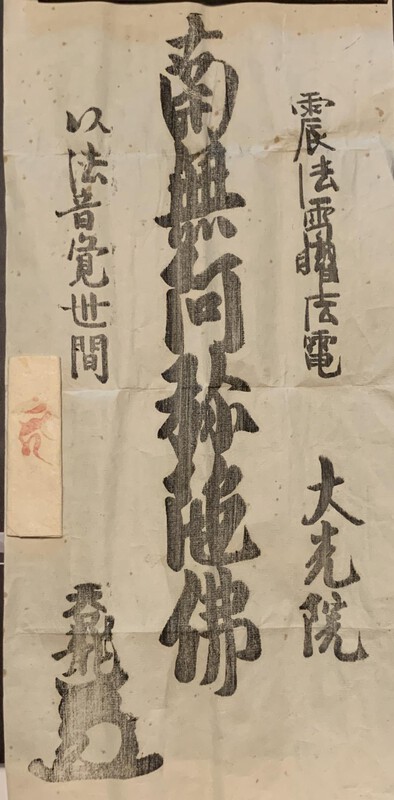 震法雷曜法電
大光院
南無阿弥陀佛
以法音覚世間